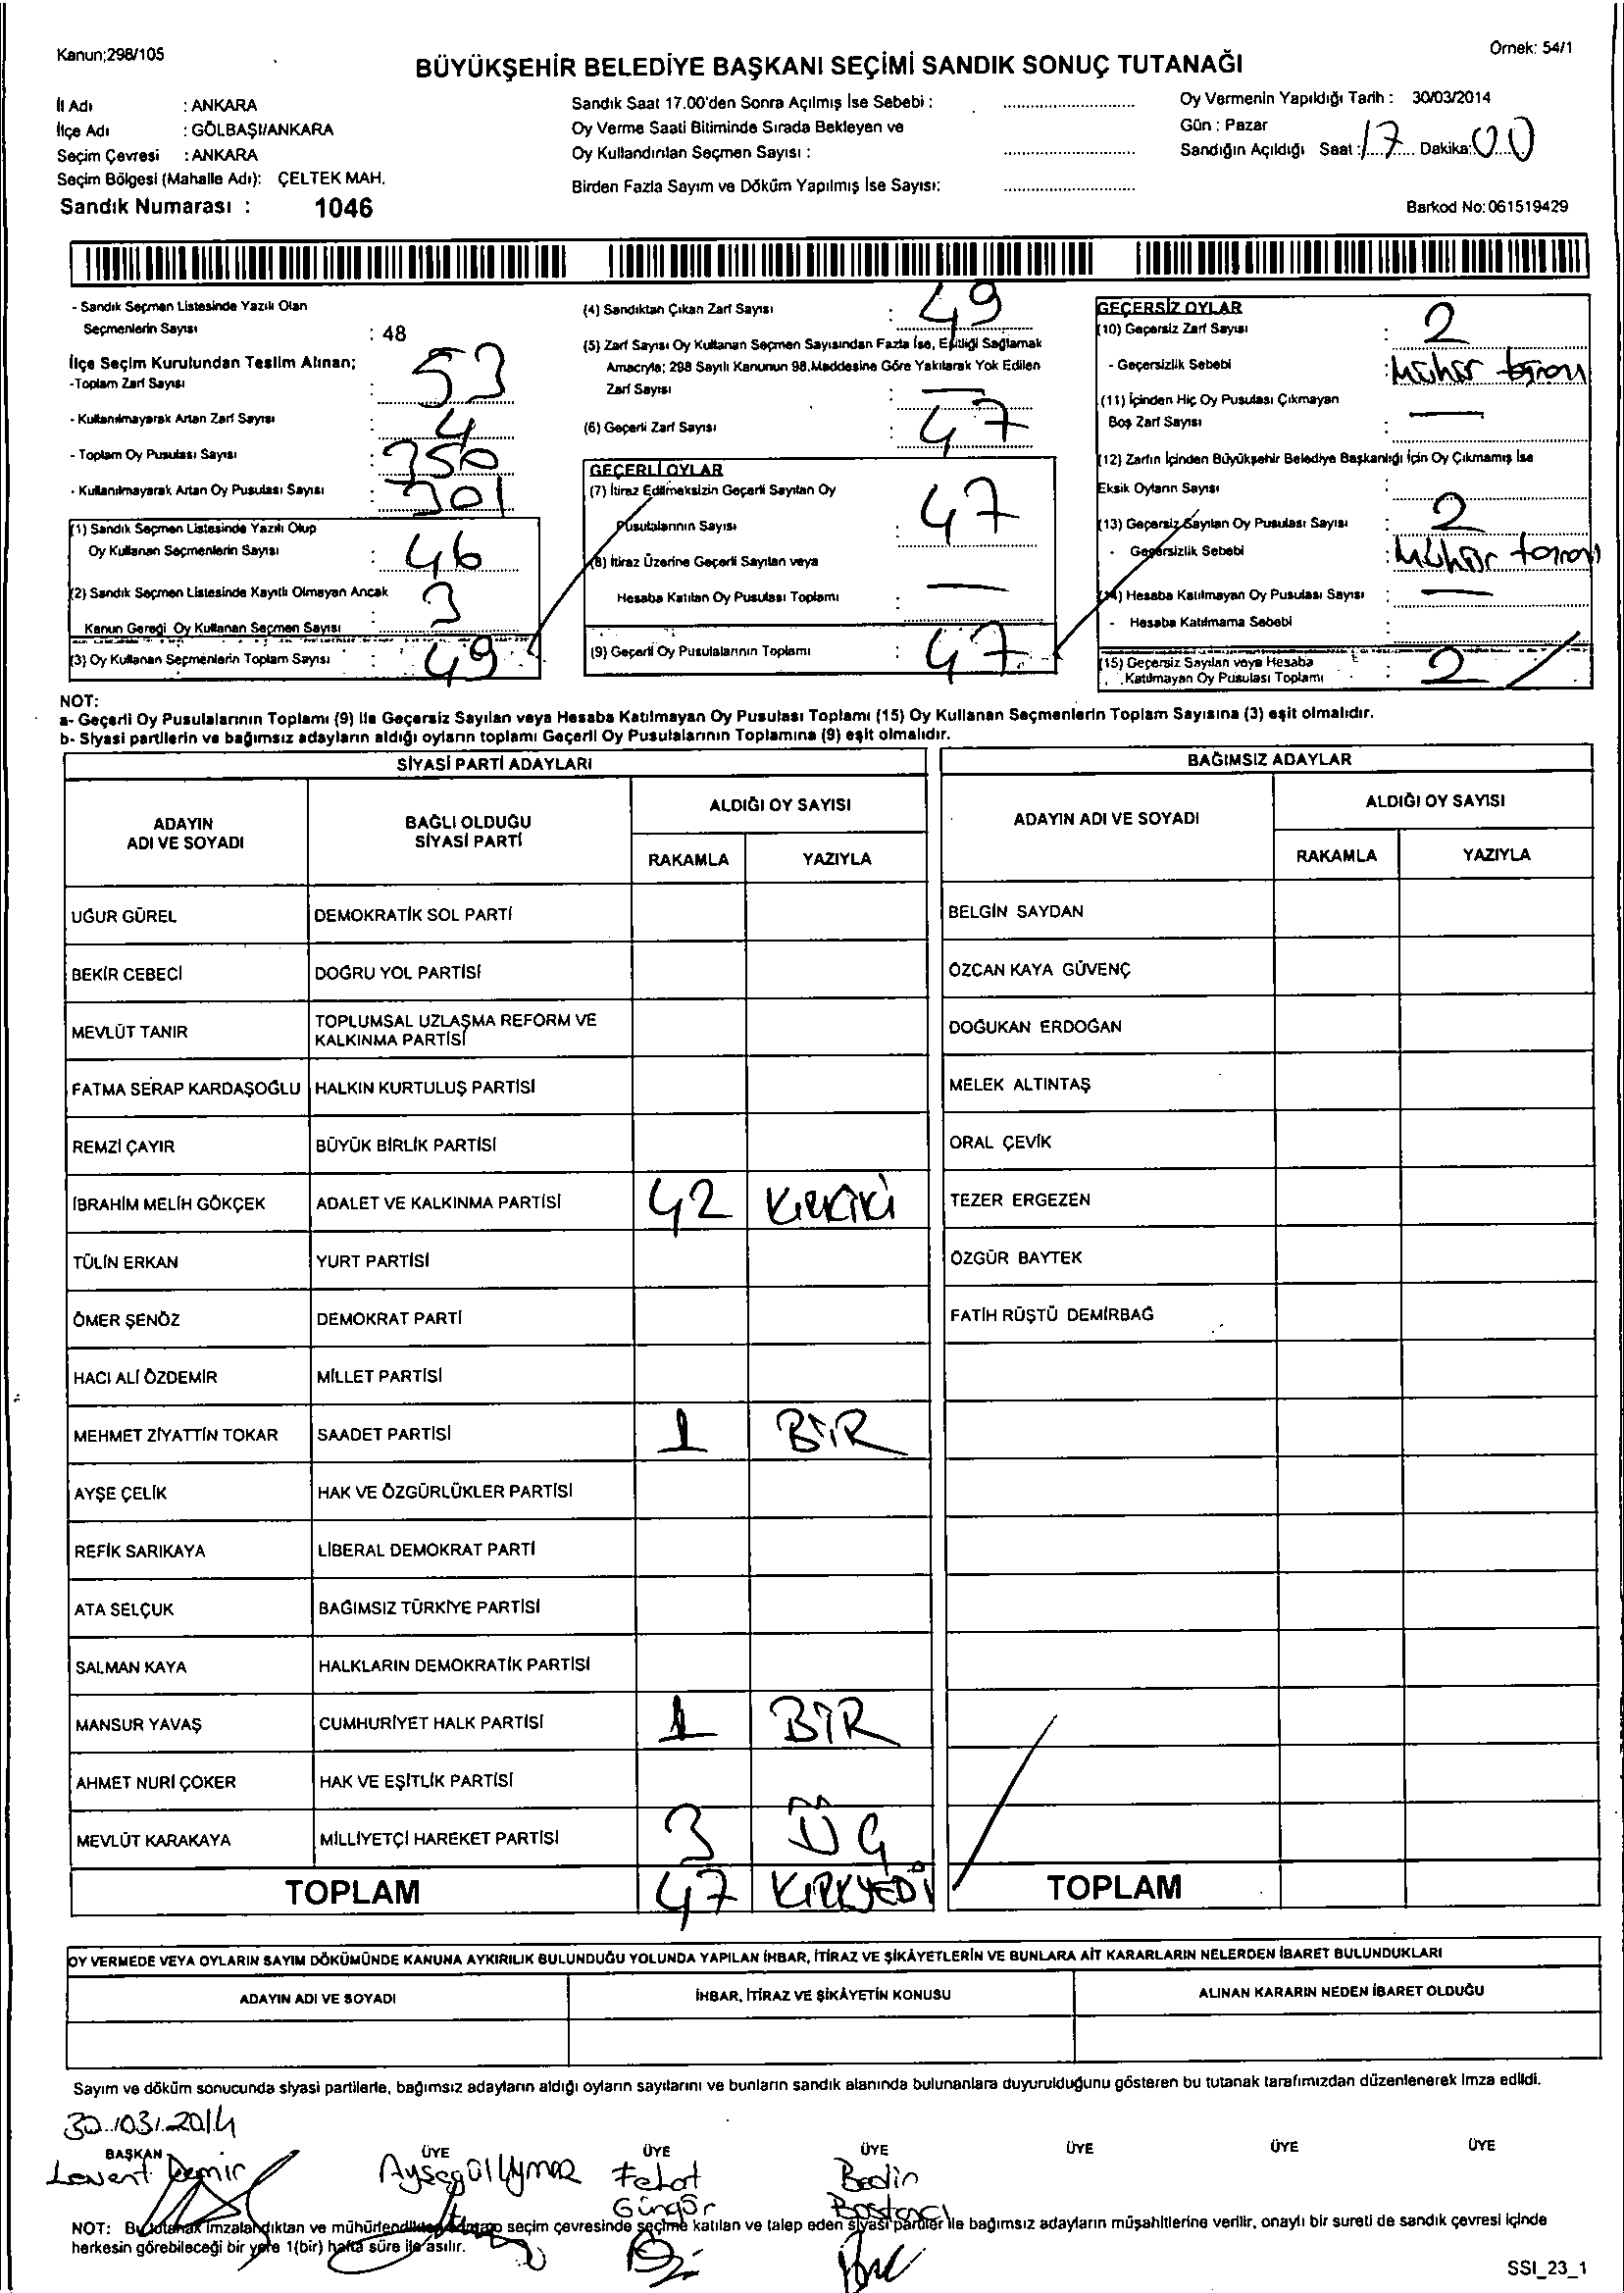 Kanun;298/105
Örnek: 54/1
BÜYÜKŞEHİR BELEDİYE BAŞKANI SEÇİMİ SANDIK SONUÇ TUTANAĞI
İl Adı : ANKARA
İlçe Adı : GÖLBAŞI/ANKARA
Seçim Çevresi : ANKARA
Seçim Bölgesi (Mahalle Adı): ÇELTEK MAH.
Sandık Numarası : 1046
Sandık Saat 17.00'den Sonra Açılmış İse Sebebi :
Oy Verme Saati Bitiminde Sırada Bekleyen ve
Oy Kullandırılan Seçmen Sayısı :
Birden Fazla Sayım ve Döküm Yapılmış İse Sayısı:
Oy Vermenin Yapıldığı Tarih : 30/03/2014
Gün : Pazar
Sandığın Açıldığı Saat : 17 Dakika: 00
Barkod No: 061519429
- Sandık Seçmen Listesinde Yazılı Olan
Seçmenlerin Sayısı : 48
İlçe Seçim Kurulundan Teslim Alınan;
-Toplam Zarf Sayısı : 53
- Kullanılmayarak Artan Zarf Sayısı : 4
- Toplam Oy Pusulası Sayısı : 350
- Kullanılmayarak Artan Oy Pusulası Sayısı : 301
(1) Sandık Seçmen Listesinde Yazılı Olup
Oy Kullanan Seçmenlerin Sayısı : 46
(2) Sandık Seçmen Listesinde Kayıtlı Olmayan Ancak
Kanun Gereği Oy Kullanan Seçmen Sayısı : 3
(3) Oy Kullanan Seçmenlerin Toplam Sayısı : 49
(4) Sandıktan Çıkan Zarf Sayısı : 49
(5) Zarf Sayısı Oy Kullanan Seçmen Sayısından Fazla İse, Eşitliği Sağlamak
Amacıyla; 298 Sayılı Kanunun 98.Maddesine Göre Yakılarak Yok Edilen
Zarf Sayısı : —
(6) Geçerli Zarf Sayısı : 47
GEÇERLİ OYLAR
(7) İtiraz Edilmeksizin Geçerli Sayılan Oy
Pusulalarının Sayısı : 47
(8) İtiraz Üzerine Geçerli Sayılan veya
Hesaba Katılan Oy Pusulası Toplamı : —
(9) Geçerli Oy Pusulalarının Toplamı : 47
GEÇERSİZ OYLAR
(10) Geçersiz Zarf Sayısı : 2
- Geçersizlik Sebebi :
(11) İçinden Hiç Oy Pusulası Çıkmayan
Boş Zarf Sayısı : —
(12) Zarfın İçinden Büyükşehir Belediye Başkanlığı İçin Oy Çıkmamış İse
Eksik Oyların Sayısı :
(13) Geçersiz Sayılan Oy Pusulası Sayısı : 2
- Geçersizlik Sebebi :
(14) Hesaba Katılmayan Oy Pusulası Sayısı : —
- Hesaba Katılmama Sebebi :
(15) Geçersiz Sayılan veya Hesaba
Katılmayan Oy Pusulası Toplamı : 2
NOT:
a- Geçerli Oy Pusulalarının Toplamı (9) ile Geçersiz Sayılan veya Hesaba Katılmayan Oy Pusulası Toplamı (15) Oy Kullanan Seçmenlerin Toplam Sayısına (3) eşit olmalıdır.
b- Siyasi partilerin ve bağımsız adayların aldığı oyların toplamı Geçerli Oy Pusulalarının Toplamına (9) eşit olmalıdır.
SİYASİ PARTİ ADAYLARI
ADAYIN ADI VE SOYADI
BAĞLI OLDUĞU SİYASİ PARTİ
ALDIĞI OY SAYISI
RAKAMLA YAZIYLA
UĞUR GÜREL DEMOKRATİK SOL PARTİ
BEKİR CEBECİ DOĞRU YOL PARTİSİ
MEVLÜT TANIR TOPLUMSAL UZLAŞMA REFORM VE
KALKINMA PARTİSİ
FATMA SERAP KARDAŞOĞLU HALKIN KURTULUŞ PARTİSİ
REMZİ ÇAYIR BÜYÜK BİRLİK PARTİSİ
İBRAHİM MELİH GÖKÇEK ADALET VE KALKINMA PARTİSİ 42 Kırkiki
TÜLİN ERKAN YURT PARTİSİ
ÖMER ŞENÖZ DEMOKRAT PARTİ
HACI ALİ ÖZDEMİR MİLLET PARTİSİ
MEHMET ZİYATTİN TOKAR SAADET PARTİSİ 1 BİR
AYŞE ÇELİK HAK VE ÖZGÜRLÜKLER PARTİSİ
REFİK SARIKAYA LİBERAL DEMOKRAT PARTİ
ATA SELÇUK BAĞIMSIZ TÜRKİYE PARTİSİ
SALMAN KAYA HALKLARIN DEMOKRATİK PARTİSİ
MANSUR YAVAŞ CUMHURİYET HALK PARTİSİ 1 BİR
AHMET NURİ ÇOKER HAK VE EŞİTLİK PARTİSİ
MEVLÜT KARAKAYA MİLLİYETÇİ HAREKET PARTİSİ 3 ÜÇ
TOPLAM 47 KIRKYEDİ
BAĞIMSIZ ADAYLAR
ADAYIN ADI VE SOYADI
ALDIĞI OY SAYISI
RAKAMLA YAZIYLA
BELGİN SAYDAN
ÖZCAN KAYA GÜVENÇ
DOĞUKAN ERDOĞAN
MELEK ALTINTAŞ
ORAL ÇEVİK
TEZER ERGEZEN
ÖZGÜR BAYTEK
FATİH RÜŞTÜ DEMİRBAĞ
TOPLAM
OY VERMEDE VEYA OYLARIN SAYIM DÖKÜMÜNDE KANUNA AYKIRILIK BULUNDUĞU YOLUNDA YAPILAN İHBAR, İTİRAZ VE ŞİKÂYETLERİN VE BUNLARA AİT KARARLARIN NELERDEN İBARET BULUNDUKLARI
ADAYIN ADI VE SOYADI İHBAR, İTİRAZ VE ŞİKÂYETİN KONUSU ALINAN KARARIN NEDEN İBARET OLDUĞU
Sayım ve döküm sonucunda siyasi partilerle, bağımsız adayların aldığı oyların sayılarını ve bunların sandık alanında bulunanlara duyurulduğunu gösteren bu tutanak tarafımızdan düzenlenerek imza edildi.
30.03.2014
BAŞKAN ÜYE ÜYE ÜYE ÜYE ÜYE ÜYE
Levent Demir Ayşegül Bedin
Güngör Bostancı
NOT: Bu tutanak imzalandıktan ve mühürlendikten sonra seçim çevresinde seçime katılan ve talep eden siyasi partiler ile bağımsız adayların müşahitlerine verilir, onaylı bir sureti de sandık çevresi içinde
herkesin görebileceği bir yere 1(bir) hafta süre ile asılır.
SSI_23_1